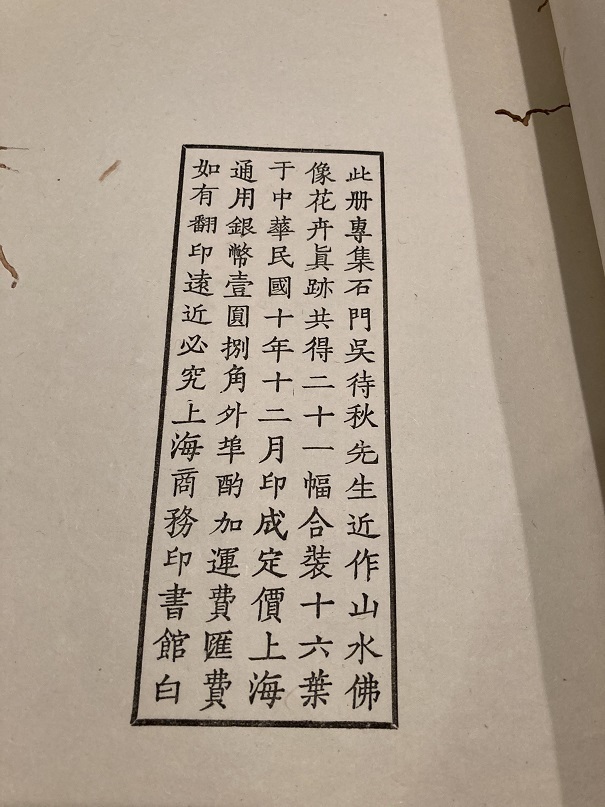 此册專集石門吳待秋先生近作山水佛
像花卉眞跡共得二十一幅合裝十六葉
于中華民國十年十二月印成定價上海
通用銀幣壹圓捌角外埠酌加運費匯費
如有翻印遠近必究上海商務印書館白